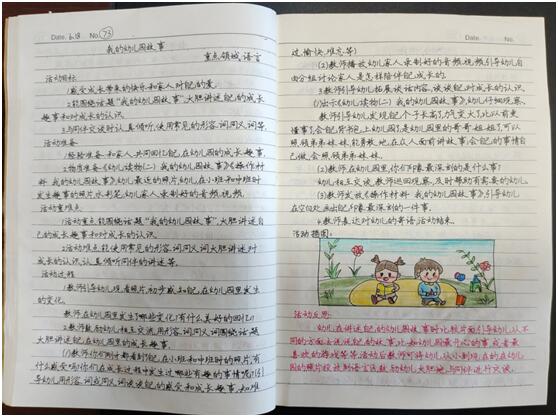 Date. 6.18 No. 73
我的幼儿园故事
重点领域：语言
活动目标
1.感受成长带来的快乐和家人对自己的爱。
2.能围绕话题"我的幼儿园故事"，大胆讲述自己的成长
趣事和对成长的认识。
3.与同伴交谈时认真倾听，使用常见的形容词、同义词等。
活动准备
1.经验准备：和家人共同回忆自己在幼儿园的成长趣事。
2.物质准备：《幼儿读物(二)我的幼儿园故事》《操作材
料 我的幼儿园故事》，幼儿最近的照片，幼儿在小班和中班时
发生趣事的照片，水彩笔，幼儿家人录制好的音频、视频。
活动重难点
1.活动重点：能围绕话题"我的幼儿园故事"，大胆讲述自
己的成长趣事和对成长的认识。
2.活动难点：能使用常见的形容词、同义词大胆讲述对
成长的认识，认真倾听同伴的讲述等。
活动过程
1.教师引导幼儿观看照片，初步感知自己在幼儿园里发生
的变化。
教师：在幼儿园里发生了哪些变化？有什么美好的回忆？
2.教师鼓励幼儿相互交流，用形容词、同义词围绕话题
大胆讲述自己在幼儿园里的成长趣事。
(1)教师：你们刚才都看到自己在小班和中班时的照片，有
什么感受吗？你们在成长过程中发生过哪些有趣的事情呢？(引
导幼儿用形容词或同义词谈谈自己的感受和成长趣事，如难
Date. No.
过、愉快、难忘等)
(2)教师播放幼儿家人录制好的音频、视频，引导幼儿自
由分组讨论家人是怎样陪伴自己成长的。
3.教师引导幼儿拓展谈话内容，谈谈自己对成长的认识。
(1)出示《幼儿读物(二)我的幼儿园故事》，幼儿仔细观察。
教师：幼儿发现自己个子长高了，力气变大了，比以前更
懂事了，会自己背书包上幼儿园，是幼儿园里的哥哥、姐姐了，可以
照顾弟弟、妹妹，能勇敢地在众人面前讲故事，会自己的事情自
己做，会照顾弟弟、妹妹。
(2)教师：在幼儿园里，你们印象最深刻的是什么事？
幼儿相互交谈，教师巡回观察，及时帮助有需要的幼儿。
(3)教师发放《操作材料 我的幼儿园故事》，引导幼儿
在空白处画出自己印象最深刻的一件事。
4.教师表达对幼儿的寄语，活动结束。
活动插图：
活动反思：
幼儿在讲述自己的幼儿园故事时比较片面，引导幼儿从不
同的方面去谈谈自己的故事，比如幼儿园最开心的事，或者最
喜欢的游戏等等，活动后教师可将幼儿从小到现在的在幼儿
园的照片投放到语言区，鼓励幼儿大胆地与同伴进行交谈。